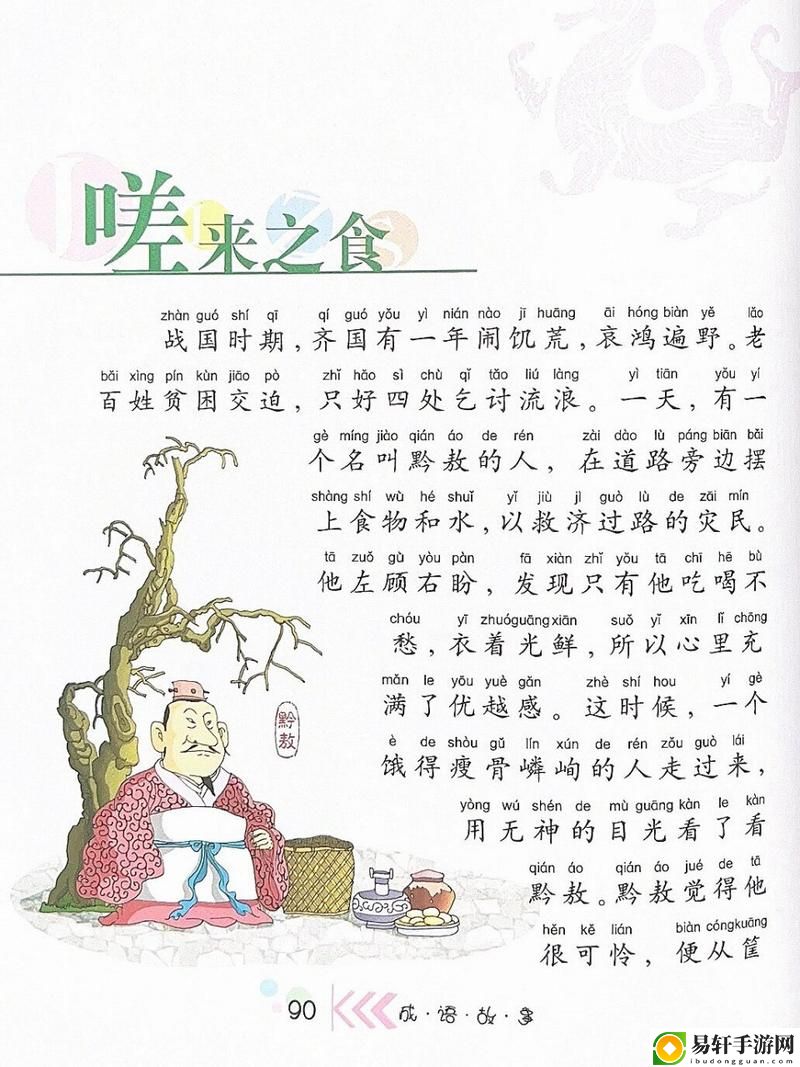 嗟来之食
zhàn guó shí qī qí guó yǒu yì nián nào jī huāng āi hóng biàn yě lǎo
战国时期，齐国有一年闹饥荒，哀鸿遍野。老
bǎi xìng pín kùn jiāo pò zhǐ hǎo sì chù qǐ tǎo liú làng yì tiān yǒu yí
百姓贫困交迫，只好四处乞讨流浪。一天，有一
gè míng jiào qián áo de rén zài dào lù páng biān bǎi
个名叫黔敖的人，在道路旁边摆
shàng shí wù hé shuǐ yǐ jiù jì guò lù de zāi mín
上食物和水，以救济过路的灾民。
tā zuǒ gù yòu pàn fā xiàn zhǐ yǒu tā chī hē bù
他左顾右盼，发现只有他吃喝不
chóu yī zhuó guāng xiān suǒ yǐ xīn lǐ chōng
愁，衣着光鲜，所以心里充
mǎn le yōu yuè gǎn zhè shí hou yí gè
满了优越感。这时候，一个
è de shòu gǔ lín xún de rén zǒu guò lái
饿得瘦骨嶙峋的人走过来，
yòng wú shén de mù guāng kàn le kàn
用无神的目光看了看
qián áo qián áo jué de tā
黔敖。黔敖觉得他
hěn kě lián biàn cóng kuāng
很可怜，便从筐
黔敖
90 成·语·故·事
易轩手游网
ibudongdong.com